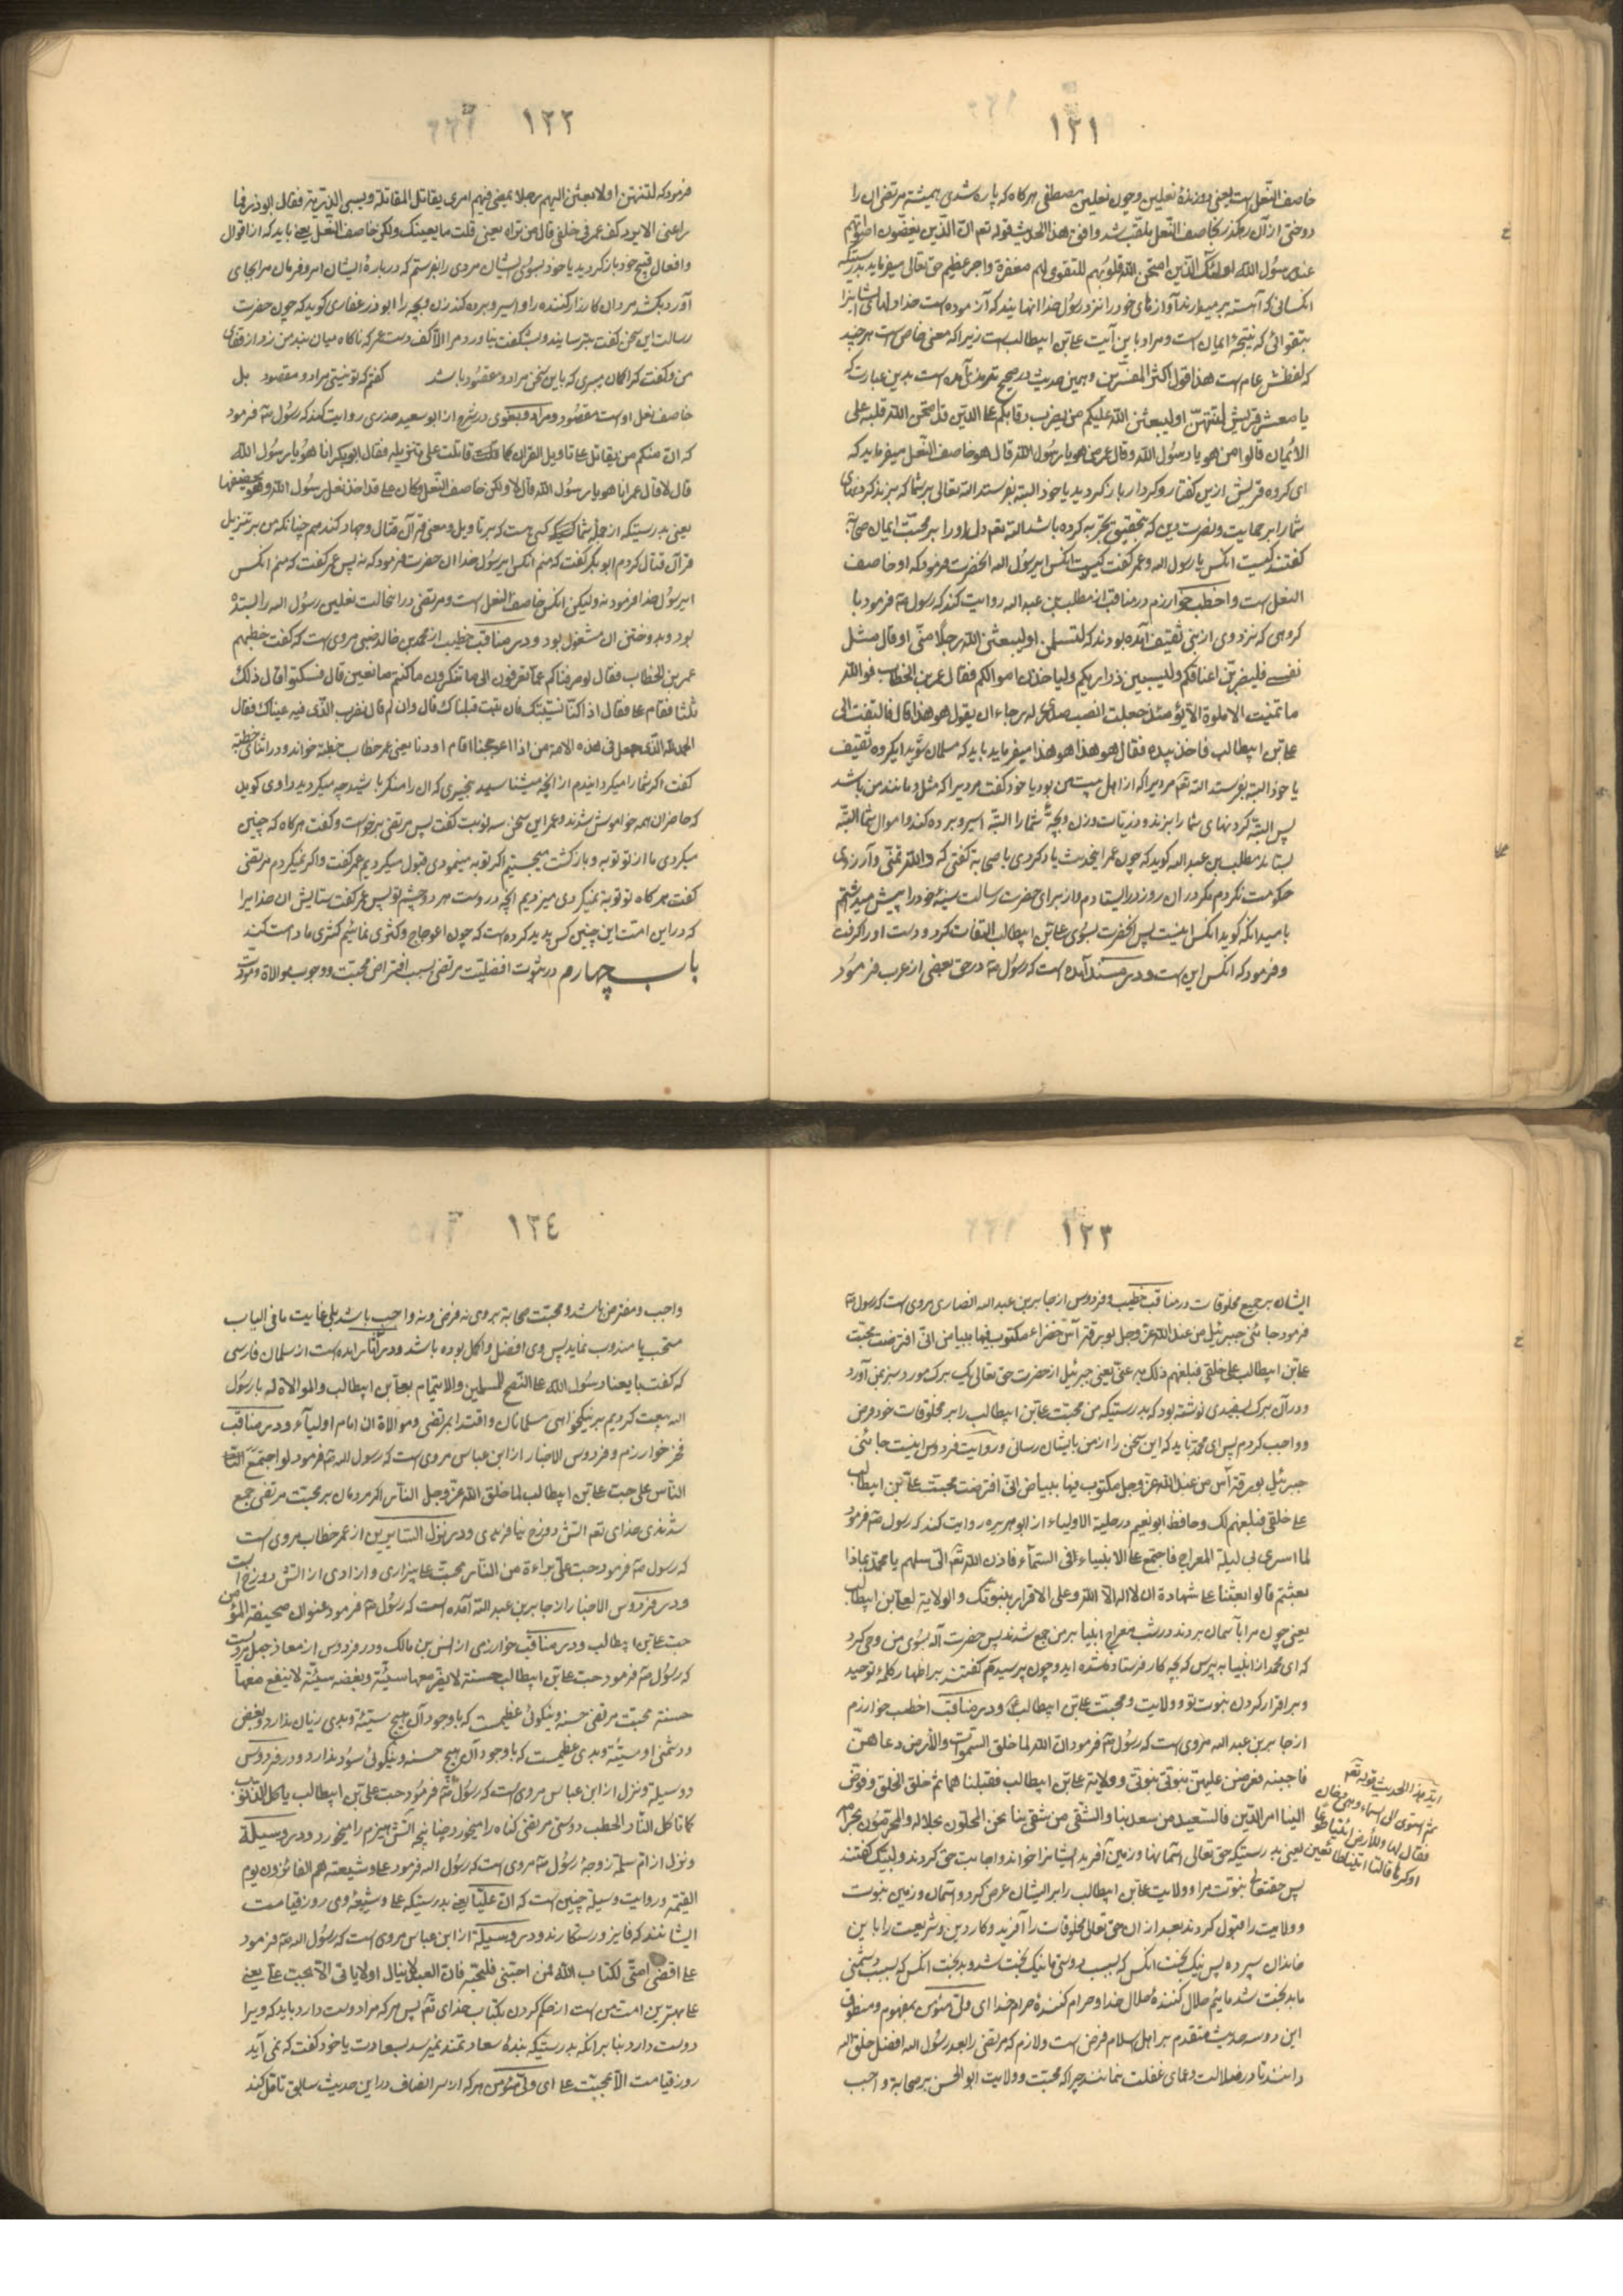 ١٢١
خاصف النّعل است یعنی دوزندهٔ نعلین و چون نعلین مصطفی هرکاه که پاره شدی همیشه مرتضی ان را
دوختی از آن رهکذر بخاصف النّعل ملقب شد وافق هذا الحدیث قوله تع انّ الّذین یغضّون اصواتهم
عند رسُول الله اولئک الّذین امتحن الله قلوبهم للتقوی لهم مغفرة واجر عظیم حق تعالی میفرماید بدرستیکه
انکسانی که آهسته برمیدارند آوازهای خود را نزد رسُول خدا انهایند که آزموده است خدا دلهای ایشانرا
بتقوائی که نتیجهٔ ایمان است و مراد باین آیت علی بن ابیطالب است زیرا که معنی خاص است هرچند
که لفظش عام است هذا قول اکثر المفسّرین و همین حدیث در صحیح ترمذی آمده است بدین عبارت که
یا معشر قریش لتنتهنّ او لیبعثن الله علیکم من یضرب رقابکم علی الدّین قد امتحن الله قلبه علی
الایُمان قالوا من هو یا رسُول الله و قال عمر من هو یا رسُول الله قال هو خاصف النّعل میفرماید که
ای کروه قریش ازین کفتار و کردار باز کردید یا خود البتّه بفرستد الله تعالی بر شما که بزند کردنهای
شما را بر حمایت و نصرت دین که بتحقیق تجربه کرده باشد الله تع دل او را بر محبّت ایمان صحابه
کفتند کیست انکس یا رسول الله و عمر کفت کیست انکس ای رسُول الله انحضرت فرمود که او خاصف
النعل است و اخطب خوارزم در مناقب از مطلب بن عبد الله روایت کند که رسُول ص فرمود با
کروهی که نزد وی از بنی ثقیف آمده بودند که لتسلمن او لیبعثن الله رجلا منّی او قال مثل
نفسی فلیضربّن اعناقکم و لیسبین ذراریکم و لیاخذن اموالکم فقال عمر بن الخطاب فوالله
ما تمنیت الامارة الا یومئذ جعلت انصب صدری له رجاء ان یقول هو هذا قال فالتفت الی
علی بن ابیطالب فاخذ بیده فقال هو هذا هو هذا میفرماید باید که مسلمان شوید ایکروه ثقیف
یا خود البتّه بفرستد الله تع مردیرا که از اهل بیت من بود یا خود کفت مردیرا که مثل و مانند من باشد
پس البتّه کردنهای شما را بزند و ذریات و زن و بچهٔ شما را البتّه اسیر و برده کند و اموال شما البتّه
بستاند مطلب بن عبد الله کوید که چون عمر اینحدیث یاد کردی با صحابه کفتی که والله تمنّی و آرزوی
حکومت نکردم مکر در ان روز در ایستادم و از برای حضرت رسالت سینهٔ خود را پیش میداشتم
بامید انکه کوید انکس اینست پس انحضرت بسُوی علی بن ابیطالب التفات کرد و دست او را کرفت
و فرمود که انکس این است و در مسند آمده است که رسُول ص در حق بعضی از عرب فرمود
١٢٢
فرمود که لتنتهن او لابعثن الیهم رجلا یمضی فیهم امری یقاتل المقاتلة و یسبی الذریة فقال ابوذر فما
راعنی الا برد کف عمر فی خلفی قال من تراه یعنی قلت ما یعینک ولکن خاصف النّعل یعنی باید که از اقوال
و افعال قبیح خود باز کردید یا خود بسُوی ایشان مردی را بفرستم که در بارهٔ ایشان امر و فرمان مرا بجای
آورد بکشد مردان کارزار کننده را و اسیر و برده کند زن و بچه را ابوذر غفاری کوید که چون حضرت
رسالت این سخن کفت نترسانید و بشکفت نیاورد مرا الا کف دست عمر که ناکاه میان بند من زد از قفای
من و کفت کرا کمان میبری که باین سخن مراد و مقصُود باشد کفتم که تو نیستی مراد و مقصود بل
خاصف نعل اوست مقصُود و مراد و بغوی در شرح از ابو سعید خدری روایت کند که رسُول ص فرمود
که انّ منکم من یقاتل علی تاویل القران کما قاتلت علی تنزیله فقال ابوبکر انا هُو یا رسُول الله
قال لا قال عمر انا هو یا رسُول الله قال لا ولکن خاصف النّعل وکان علی قد اخذ نعل رسُول الله وهو یخصفها
یعنی بدرستیکه از جملهٔ شما کسی هست که بر تاویل و معنی قرآن قتال و جهاد کند همچنانکه من بر تنزیل
قرآن قتال کردم ابوبکر کفت که منم انکس ایرسُول خدا ان حضرت فرمود که نه پس عمر کفت که منم انکس
ایرسُول خدا فرمود نه ولیکن انکس خاصف النعل است و مرتضی در انحالت نعلین رسُول الله را بستده
بود و بدوختن ان مشغول بود و در مناقب خطیب از محمد بن خالد ضبی مروی است که کفت خطبهم
عمر بن الخطاب فقال لو صرفناکم عما تعرفون الی ما تنکرون ما کنتم صانعین قال فسکتوا قال ذلک
ثلثا فقام علی فقال اذا کنّا نستیبک فان تبت قبلناک قال وان لم قال نضرب الذّی فیه عیناک فقال
الحمد لله الّذی جعل فی هذه الامة من اذا اعوججنا اقام اودنا یعنی عمر خطاب خطبه خواند و در اثنای خطبه
کفت اکر شما را میکردانیدم از انچه میشناسید بچیزی که ان را منکر باشید چه میکردید راوی کوید
که حاضران همه خواموش شدند و عمر این سخن سه نوبت کفت پس مرتضی برخواست و کفت هرکاه که چنین
میکردی ما از تو توبه و بازکشت میجستیم اکر توبه مینمودی قبول میکردیم عمر کفت و اکر نمیکردم مرتضی
کفت هرکاه تو توبه نمیکردی میزدیم انچه دروست هر دو چشم تو پس عمر کفت ستایش ان خدایرا
که در این امت این چنین کس پدید کرده است که چون اعوجاج و کژی نمائیم کژی ما راست کند
باب چهارم در ثبوت افضلیّت مرتضی بسبب افتراض محبّت و وجوب موالاة و مودّت
١٢٣
ایشان بر جمیع مخلوقات در مناقب خطیب و فردوس از جابر بن عبد الله انصاری مروی است که رسول ص
فرمود جائنی جبرئیل من عند الله عزّ وجل بورقة آس خضراء مکتوب فیها ببیاض انّی افترضت محبّت
علی بن ابیطالب علی خلقی فبلغهم ذلک عنّی یعنی جبرئیل از حضرت حق تعالی یک برک مورد سبز بمن آورد
و در آن برک بسفیدی نوشته بود که بدرستیکه من محبّت علی بن ابیطالب را بر مخلوقات خود فرض
و واجب کردم پس ای محمّد باید که این سخن را از من بایشان رسانی و روایت فردوس اینست جائنی
جبرئیل بورقة آس من عند الله عزّ وجل مکتوب فیها ببیاض انّی افترضت محبّت علی بن ابیطالب
علی خلقی فبلغهم ذلک و حافظ ابونعیم در حلیة الاولیاء از ابوهریره روایت کند که رسول ص فرمود
لما اسری بی لیلة المعراج فاجتمع علیّ الانبیاء فی السّمآء فاذن الله تع الیّ سلهم یا محمّد بماذا
بعثتم قالوا بعثنا علی شهادة ان لا اله الّا الله و علی الاقرار بنبوّتک والولایة لعلی بن ابیطالب
یعنی چون مرا بآسمان بردند در شب معراج انبیا بر من جمع شدند پس حضرت اله بسُوی من وحی کرد
که ای محمد از انبیا بپرس که بچه کار فرستاده شده اید و چون پرسیدم کفتند بر اظهار کلمهٔ توحید
و بر اقرار کردن نبوت تو و ولایت و محبّت علی بن ابیطالب و در مناقب اخطب خوارزم
از جابر بن عبد الله مروی است که رسُول ص فرمود انّ الله لما خلق السّموات والارض دعاهنّ
فاجبنه فعرض علیهنّ نبوّتی و ولایة علی بن ابیطالب فقبلنا هما ثم خلق الخلق و فوّض
الینا امر الدّین فالسّعید من سعد بنا والشّقی من شقی بنا نحن المحلّون بحلاله والمحرّمُون بحرامه
یعنی بدرستیکه حق تعالی آسمانها و زمین آفرید ایشانرا خواند و اجابت حق کردند و لبیک کفتند
پس حقتعالی نبوّت مرا و ولایت علی بن ابیطالب را بر ایشان عرض کرد و آسمان و زمین نبوت
و ولایت را قبول کردند بعد از ان حق تعالی مخلوقات را آفرید و کار دین و شریعت را باین
خاندان سپرده پس نیک بخت انکس که بسبب دوستی ما نیک بخت شد و بدبخت انکس که بسبب دشمنی
ما بدبخت شد مائیم حلال کنندهٔ حلال خدا و حرام کنندهٔ حرام خدا ای ولیّ مؤمن بمفهوم و منطوق
این دو سه حدیث متقدم بر اهل اسلام فرض است و لازم که مرتضی را بعد رسُول الله افضل خلق الله
دانند تا در ضلالت و عمای غفلت نمانند چرا که محبّت و ولایت ابو الحسن بر صحابة واجب
ایّد هذا الحدیث قوله تع
ثم استوی الی السماء وهی دخان
فقال لها وللارض ائتیا طوعا
او کرها قالتا اتینا طائعین
١٢٤
واجب و مفترض باشد و محبّت صحابة بر وی نه فرض و نه واجب باشد بلی غایت ما فی الباب
مستحب یا مندوب نماید پس وی افضل و اکمل بوده باشد و در امده است از سلمان فارسی
که کفت بایعنا رسُول الله علی النّصح للمسلمین والایتمام بعلی بن ابیطالب والموالاة له با رسول
الله بیعت کردیم بر نیکخواهی مسلمانان و اقتدا بمرتضی و موالاة ان امام اولیآء و در مناقب
فخر خوارزم و فردوس الاخبار از ابن عباس مروی است که رسول الله ص فرمود لو اجتمع
النّاس علی حبّ علی بن ابیطالب لما خلق الله عزّ وجل النّار اکر مردمان بر محبّت مرتضی جمع
شدندی خدای تع آتش دوزخ نیافریدی و در نزل السّایرین از عمر خطاب مروی است
که رسول ص فرمود حبّ علیّ براءة من النّار محبّت علی بیزاری و ازادی از آتش دوزخ است
و در فردوس الاخبار از جابر بن عبد الله آمده است که رسُول ص فرمود عنوان صحیفة المؤمن
حبّ علی بن ابیطالب و در مناقب خوارزمی از انس بن مالک و در فردوس از معاذ جبل مرویست
که رسُول ص فرمود حبّ علی بن ابیطالب حسنة لا یضرّ معها سیّئة و بغضه سیّئة لا ینفع معها
حسنة محبّت مرتضی حسنه و نیکوئی عظیمست که با وجود آن هیچ سیّئه و بدی زیان ندارد و بغض
و دشمنی او سیّئه و بدی عظیمست که با وجود آن هیچ حسنه و نیکوئی سوُد ندارد و در فردوس
و وسیلة و نزل از ابن عباس مروی است که رسُول ص فرموُد حبّ علی بن ابیطالب یاکل الذّنوب
کما تاکل النّار الحطب دوستی مرتضی کناه را میخورد چنانچه آتش هیزم را میخورد و در وسیلة
و نزل از ام سلمه زوجهٔ رسُول ص مروی است که رسُول الله فرمود علی و شیعته هم الفائزون یوم
القیمة و روایت وسیلة چنین است که انّ علیّا یعنی بدرستیکه علی و شیعهٔ وی روز قیامت
ایشانند که فایز و رستکارند و در وسیلة از ابن عباس مروی است که رسُول الله ص فرمود
علی اقضی امّتی لکتاب الله فمن احبّنی فلیحبّه فانّ العبد لا ینال اولا یاتی الا بحبّ علی یعنی
علی بهترین امت من است از حکم کردن بکتاب خدای تع پس هرکه مرا دوست دارد باید که ویرا
دوست دارد بنا بر انکه بدرستیکه بندهٔ سعادتمند نمیرسد بسعادت یا خود کفت که نمی آید
روز قیامت الا بمحبّت علی ای ولی مؤمن هرکه از سر انصاف در این حدیث سابق تامّل کند